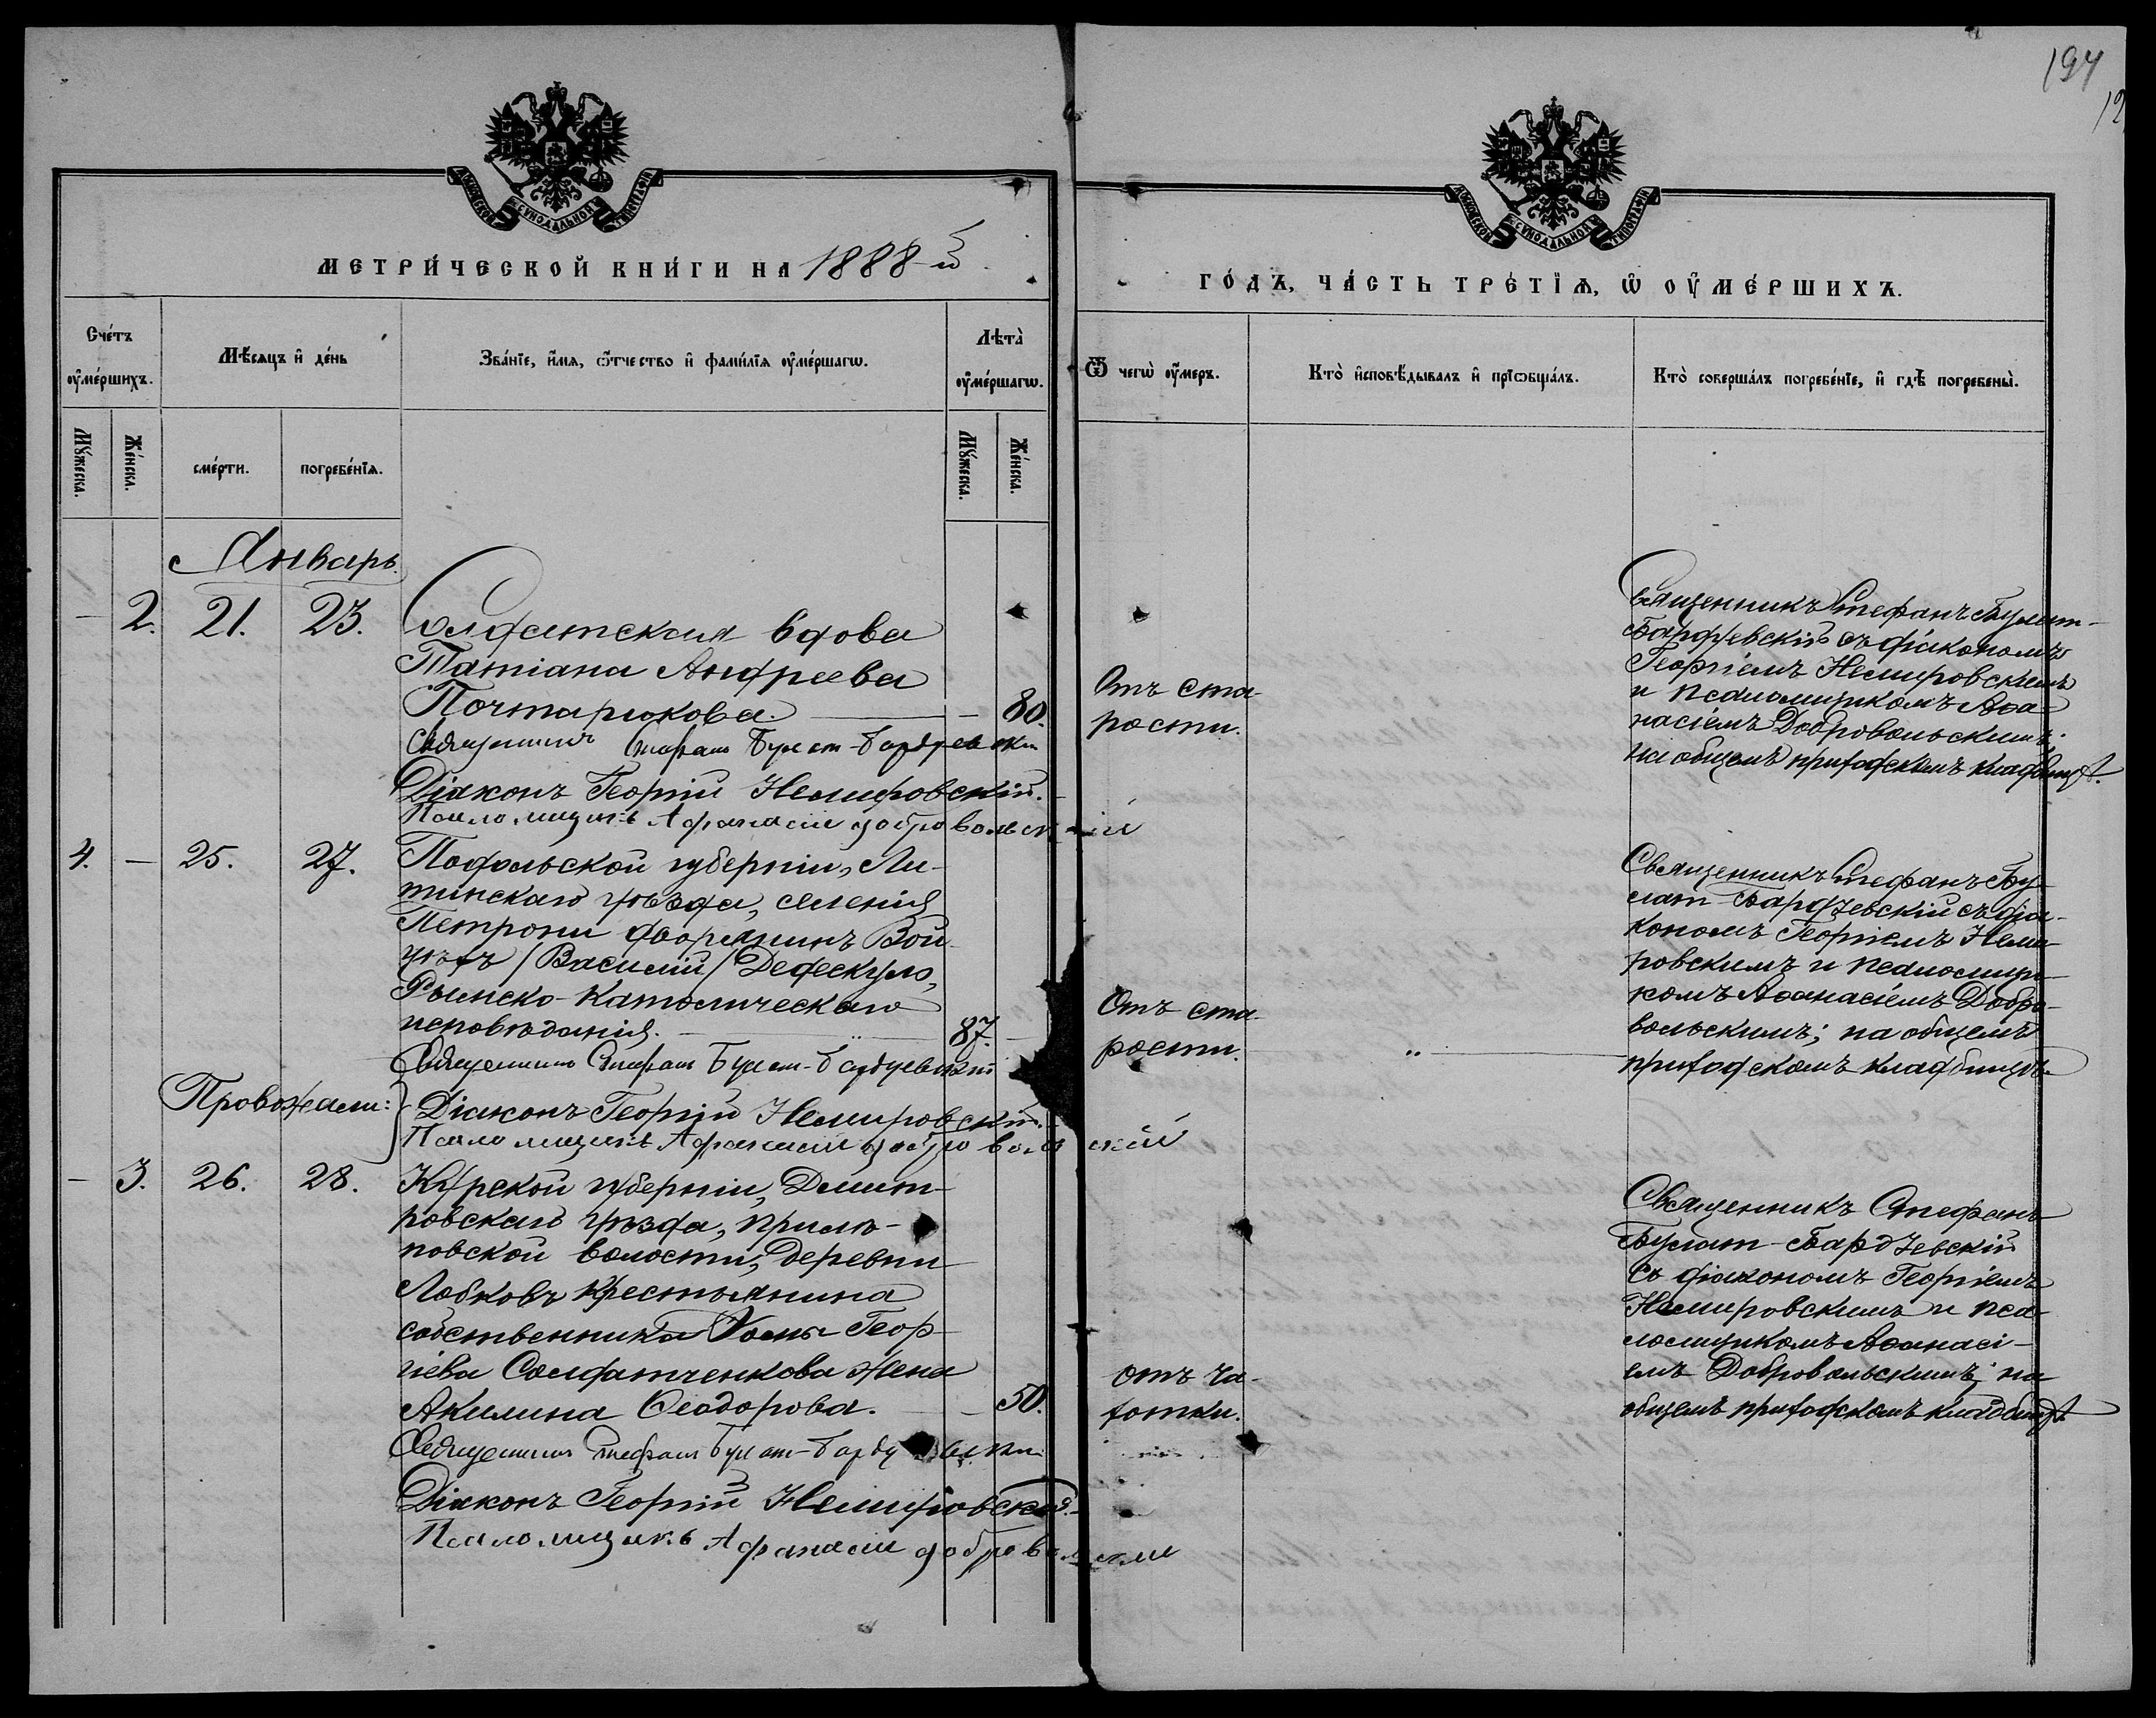 194
12
МОСКОВСКОЙ СУНОДАЛЬНОЙ ТИПОГРАФІИ
МОСКОВСКОЙ СУНОДАЛЬНОЙ ТИПОГРАФІИ
МЕТРИ́ЧЕСКОЙ КНИ́ГИ НА 1888-й
ГО́ДЪ, ЧА́СТЬ ТРЕ́ТІѦ, Ѡ ОУМЕ́РШИХЪ.
Сче́тъ оумéршихъ.
Мѣ́сяцъ и де́нь
Зва́нїе, и́мя, ѻ́тчество и фами́лїя оумéршагѡ.
Лѣта̀ оумéршагѡ.
Ѿ чегѡ̀ оу́меръ.
Кто̀ исповѣ́дывалъ и прїѡбща́лъ.
Кто̀ соверша́лъ погребе́нїе, и гдѣ̀ погребены̀.
Му́жеска.
Же́нска.
сме́рти.
погребе́нїя.
Му́жеска.
Же́нска.
Январь.
— 2. 21. 23. Солдатская вдова
Татіана Андреева
Почтарюкова. — — 80.
Священникъ Стефанъ Булат-Бардзевскій
Діаконъ Георгій Немировскій.
Псаломщикъ Афанасій Добровольскій
Отъ ста-
рости.
Священникъ Стефанъ Булат-
Бардзевскій съ діакономъ
Георгіемъ Немировскимъ
и псаломщикомъ Аѳа-
насіемъ Добровольскимъ;
на общемъ приходскомъ кладбищѣ.
4. — 25. 27. Подольской губерніи, Ли-
тинскаго уѣзда, селенія
Петрони дворянинъ Вой-
цѣхъ /Василій/ Дедескуло,
Римско-Католическаго
исповѣданія. — „ — 87. —
Священникъ Стефанъ Булат-Бардзевскій
Провожали:
Діаконъ Георгій Немировскій.
Псаломщикъ Афанасій Добровольскій
Отъ ста-
рости.
„ —
Священникъ Стефанъ Бу-
лат-Бардзевскій съ діа-
кономъ Георгіемъ Неми-
ровскимъ и псаломщи-
комъ Аѳанасіемъ Добро-
вольскимъ; на общемъ
приходскомъ кладбищѣ.
— 3. 26. 28. Курской губерніи, Дмит-
ровскаго уѣзда, Прилѣ-
повской волости, деревни
Лобковъ крестьянина
собственника Ѳомы Геор-
гіева Солдатченкова жена
Акилина Ѳеодорова. — — 50.
Священникъ Стефанъ Булат-Бардзевскій
Діаконъ Георгій Немировскій.
Псаломщикъ Афанасій Добровольскій
Отъ ча-
хотки.
Священникъ Стефанъ
Булат-Бардзевскій
съ діакономъ Георгіемъ
Немировскимъ и пса-
ломщикомъ Аѳанасі-
емъ Добровольскимъ; на
общемъ приходскомъ кладбищѣ